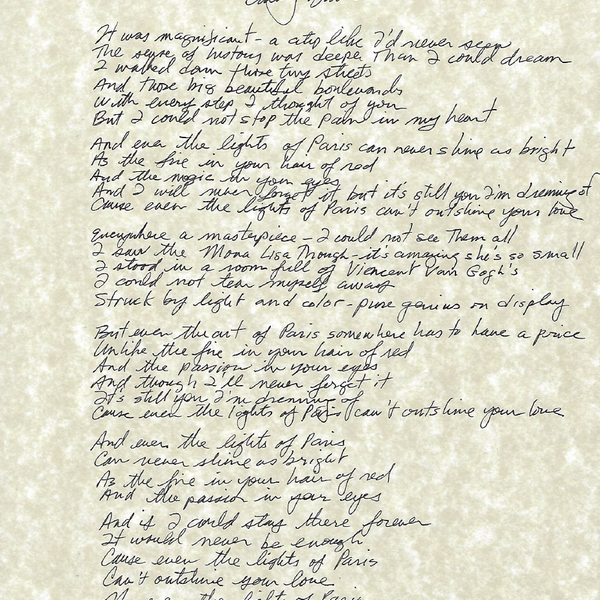 It was magnificent - a city like I'd never seen
The sense of history was deeper Than I could dream
I walked down those tiny streets
And those big beautiful boulevards
With every step I thought of you
But I could not stop the pain in my heart
And even the lights of Paris can never shine as bright
As the fire in your hair of red
And the magic in your eyes
And I will never forget it, but it's still you I'm dreaming of
Cause even the lights of Paris can't outshine your love
Everywhere a masterpiece - I could not see Them all
I saw the Mona Lisa Though - it's amazing she's so small
I stood in a room full of Viencent Van Gogh's
I could not tear myself away
Struck by light and color - pure genius on display
But even the art of Paris somewhere has to have a price
Unlike the fire in your hair of red
And the passion in your eyes
And though I'll never forget it
It's still you I'm dreaming of
Cause even the lights of Paris can't outshine your love
And even the lights of Paris
Can never shine as bright
As the fire in your hair of red
And the passion in your eyes
And if I could stay there forever
It would never be enough
Cause even the lights of Paris
Can't outshine your love